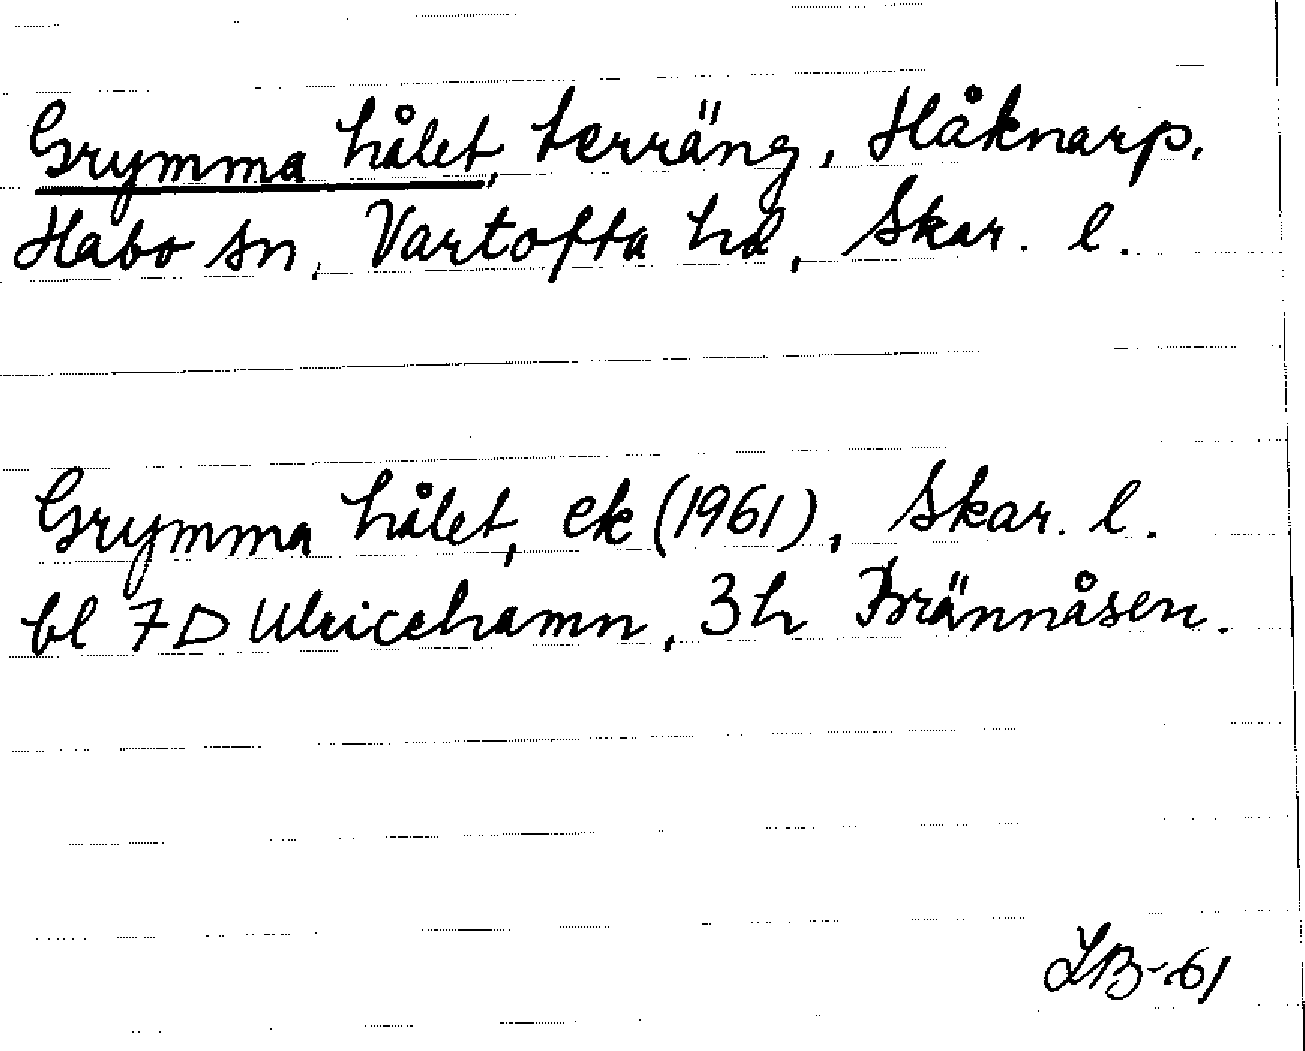 Grymma hålet, terräng, Håknarp,
Habo sn, Vartofta hd, Skar. l.
Grymma hålet, ek (1961), Skar. l.
bl 7D Ulricehamn, 3h Brännåsen.
LB-61